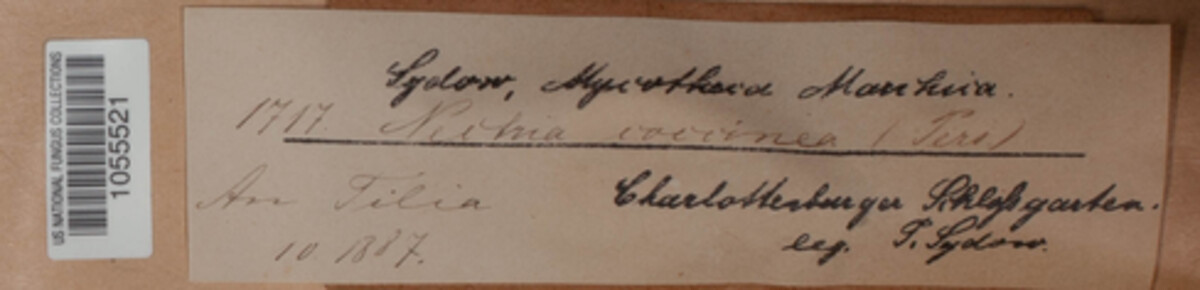 US NATIONAL FUNGUS COLLECTIONS
1055521
Sydow, Mycotheca Marchica.
1717. Nectria coccinea (Pers)
An Tilia
Charlottenburger Schloßgarten.
10 1887.
leg. P. Sydow.